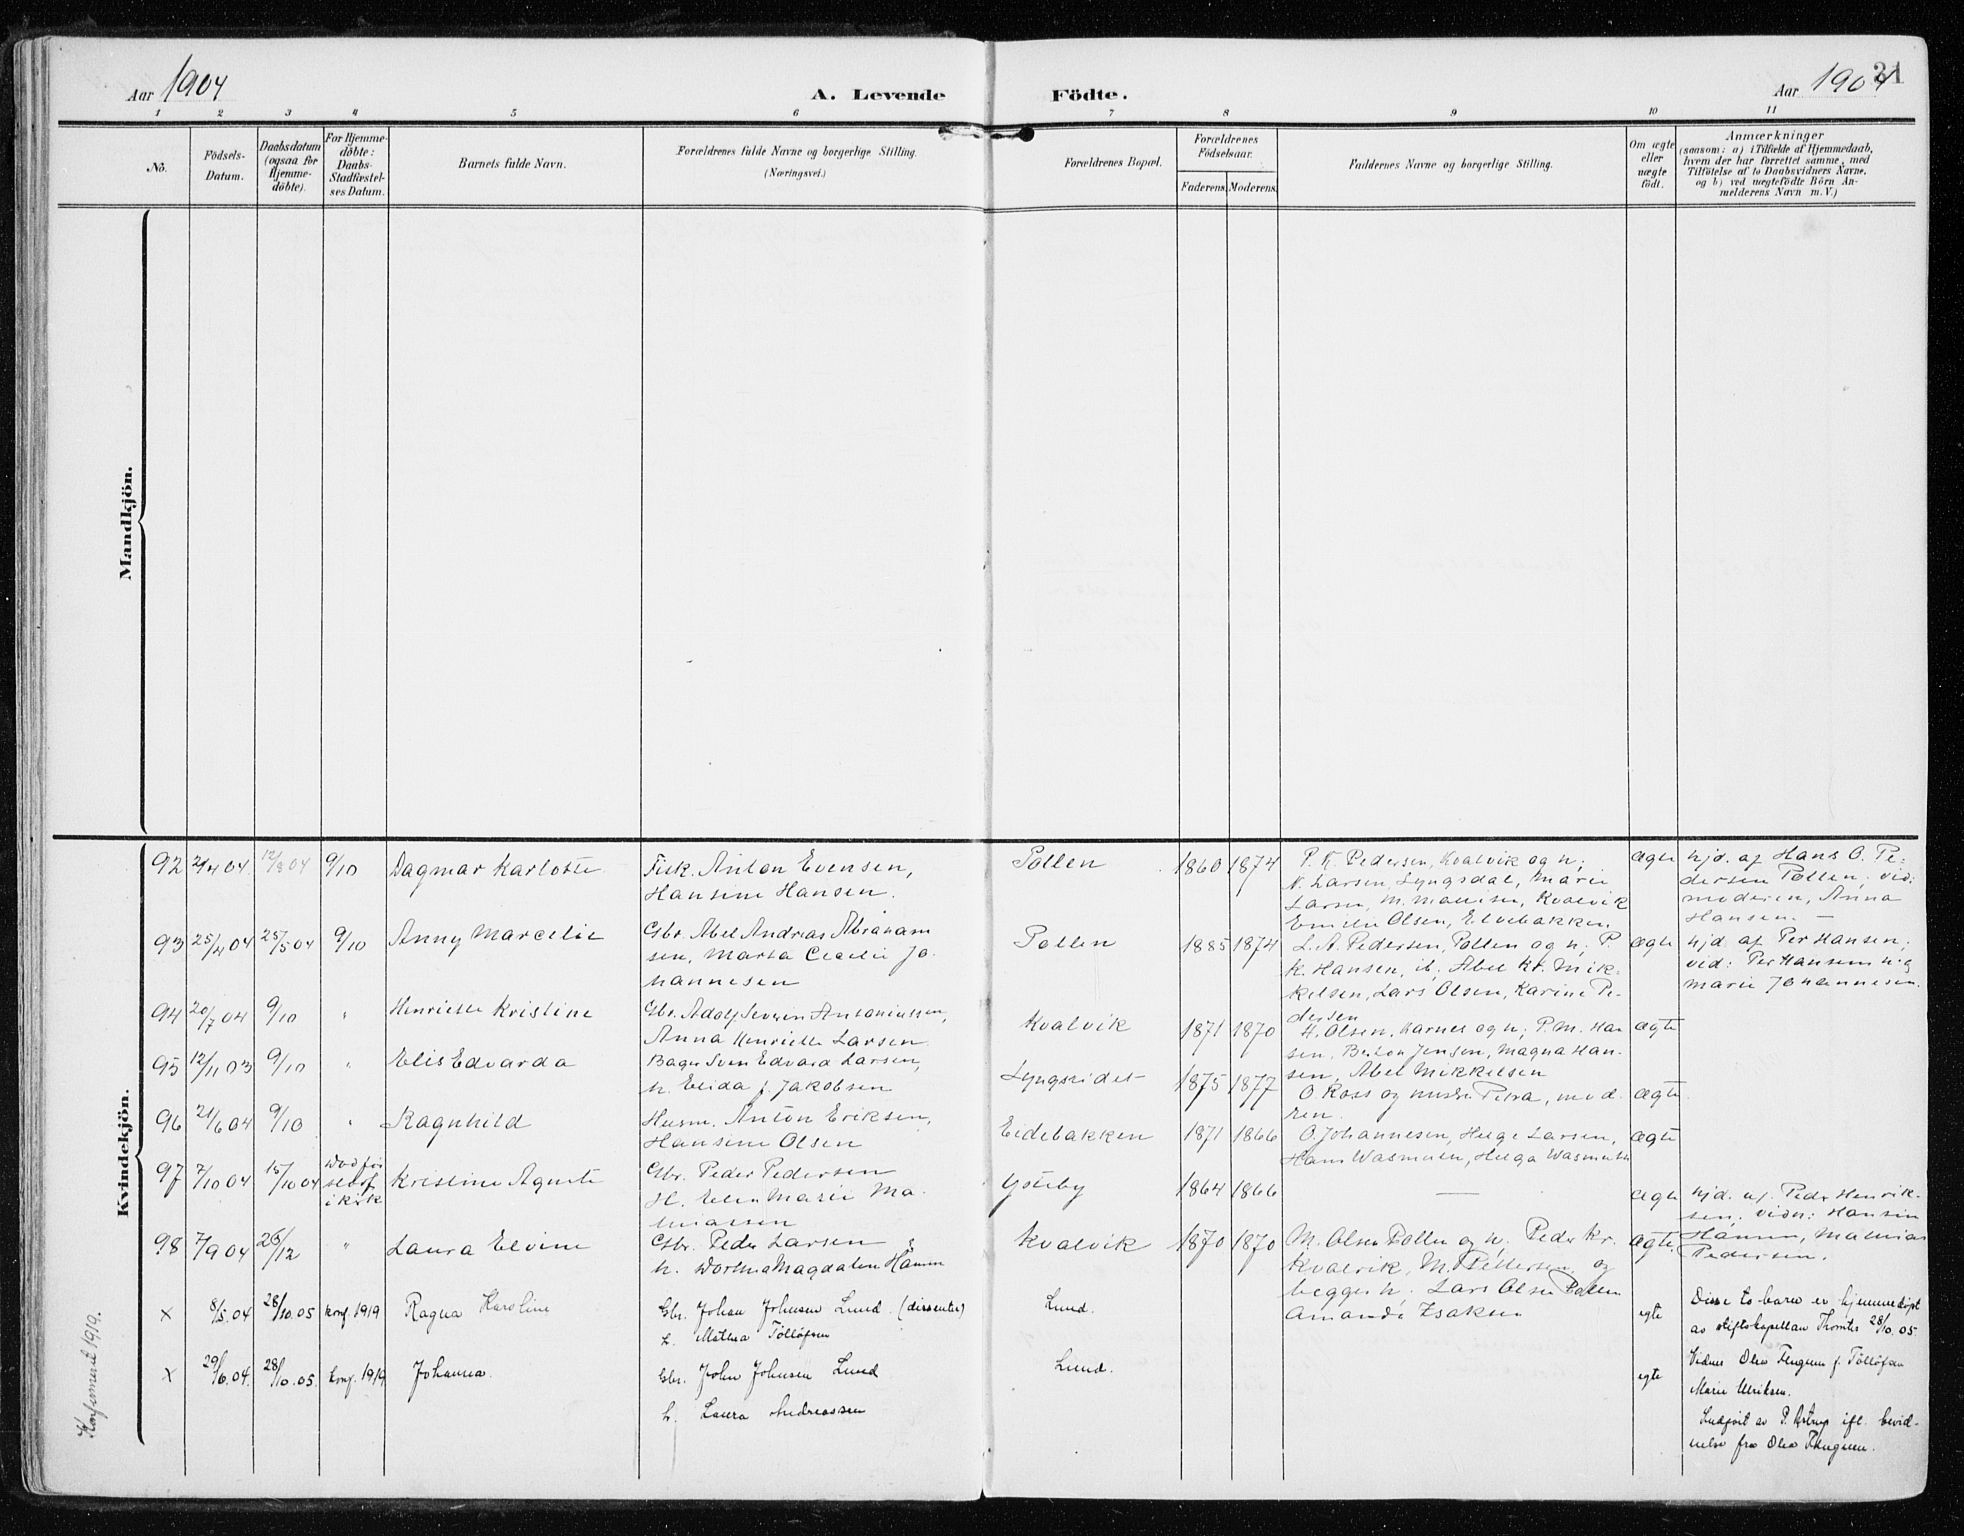 Aar 1904
A. Levende Födte.
Aar 1904
31
1 2 3 4 5 6 7 8 9 10 11
No.
Födsels-Datum.
Daabsdatum (ogsaa for Hjemme-döbte).
For Hjemme-döbte: Daabs-Stadfæstel-ses Datum.
Barnets fulde Navn.
Forældrenes fulde Navne og borgerlige Stilling.
(Næringsvei.)
Forældrenes Bopæl.
Forældrenes Födselsaar.
Faderens. Moderens.
Faddernes Navne og borgerlige Stilling.
Om ægte eller uægte födt.
Anmærkninger
(saasom: a) i Tilfælde af Hjemmedaab,
hvem der har forrettet samme, med
Tilföielse af to Daabsvidners Navne,
og b) ved uægtefödte Börn An-
melderens Navn m. V.)
Mandkjön.
Kvindekjön.
92 2/4 04 12/8 04 9/10 Dagmar Karlotte
Fisk. Anton Evensen,
Hansine Hansen.
Pollen 1860 1874
P. K. Pedersen, Kvalvik og h;
N. Larsen, Lyngsdal, Marie
Larsen, M. Kvalvik
Emilie Olsen, Elvebakken
ægte
hjd. af Hans O. Pe-
dersen Pollen; vid:
moderen, Anna
Hansen. —
93 25/4 04 25/5 04 9/10 Anny Marcelie
Gbr. Abel Andreas Abraham
sen, Marta Cecilie Jo
hannesen
Pollen 1885 1874
L. A. Pedersen, Pollen og h; P.
K. Hansen, ib. Abel Kr. Mik-
kelsen, Lars Olsen, Karine Pe-
dersen
ægte
hjd. af Per Hansen;
vid: Per Hansens h. og
Marie Johannesen.
94 20/7 04 9/10 " Henriette Kristine
Gbr. Adolf Severin Antoniussen,
Anna Henriette Larsen
Kvalvik 1871 1870
H. Olsen, Karnes og h; P. M. Han
sen, Jensen, Magna Han-
sen, Abel Mikkelsen
ægte
95 12/11 03 9/10 " Elis Edvarda
Bager Sven Edvard Larsen,
h. Elida f. Jakobsen
Lyngseidet 1875 1877
O. Koss og hustru Petra, mod.
ren.
ægte
96 21/6 04 9/10 " Ragnhild
Husm. Anton Eriksen,
Hansine Olsen
Eidebakken 1871 1866
O. Johannesen, Helge Larsen,
Hans Wasmuth, Helga Wasmuth
ægte
97 7/10 04 15/10 04 Död før stadf i kirk Kristine Agnete
Gbr. Peder Pedersen
H. Elen Marie Ma
thiassen
Ysteby 1864 1866
—
ægte
hjd. af. Peder Henrik-
sen; vidn: Hansin
Hansen, Mathias
Pedersen.
98 7/9 04 26/12 " Laura Elvine
Gbr. Peder Larsen
h. Dorthea Magdalena Hansen
Kvalvik 1870 1870
M. Olsen Pollen og h. Peder Kr.
Kvalvik, M. Pettersen og
begges h. Lars Olsen Pollen
Amanda Isaksen
ægte
x 8/5. 04 28/10. 05 konf 1919 Ragna Karoline
Gbr. Johan Johnsen Lund. (dissenter)
h. Mathea Tollefsen
Lund.
egte
Disse to barn er hjemmedøpt
av stiftskapellan 28/10. 05
x 29/6. 04. 28/10. 05. konf. 1919 Johanna.
Gbr. John Johnsen Lund
h. Laura Andreassen
Lund.
egte
Vidner Olea f. Tollefsen
Marie Ulriksen.
Indført av P. Astrup ifl. bevid-
nelse fra Olea
Konfirmeret 1919.